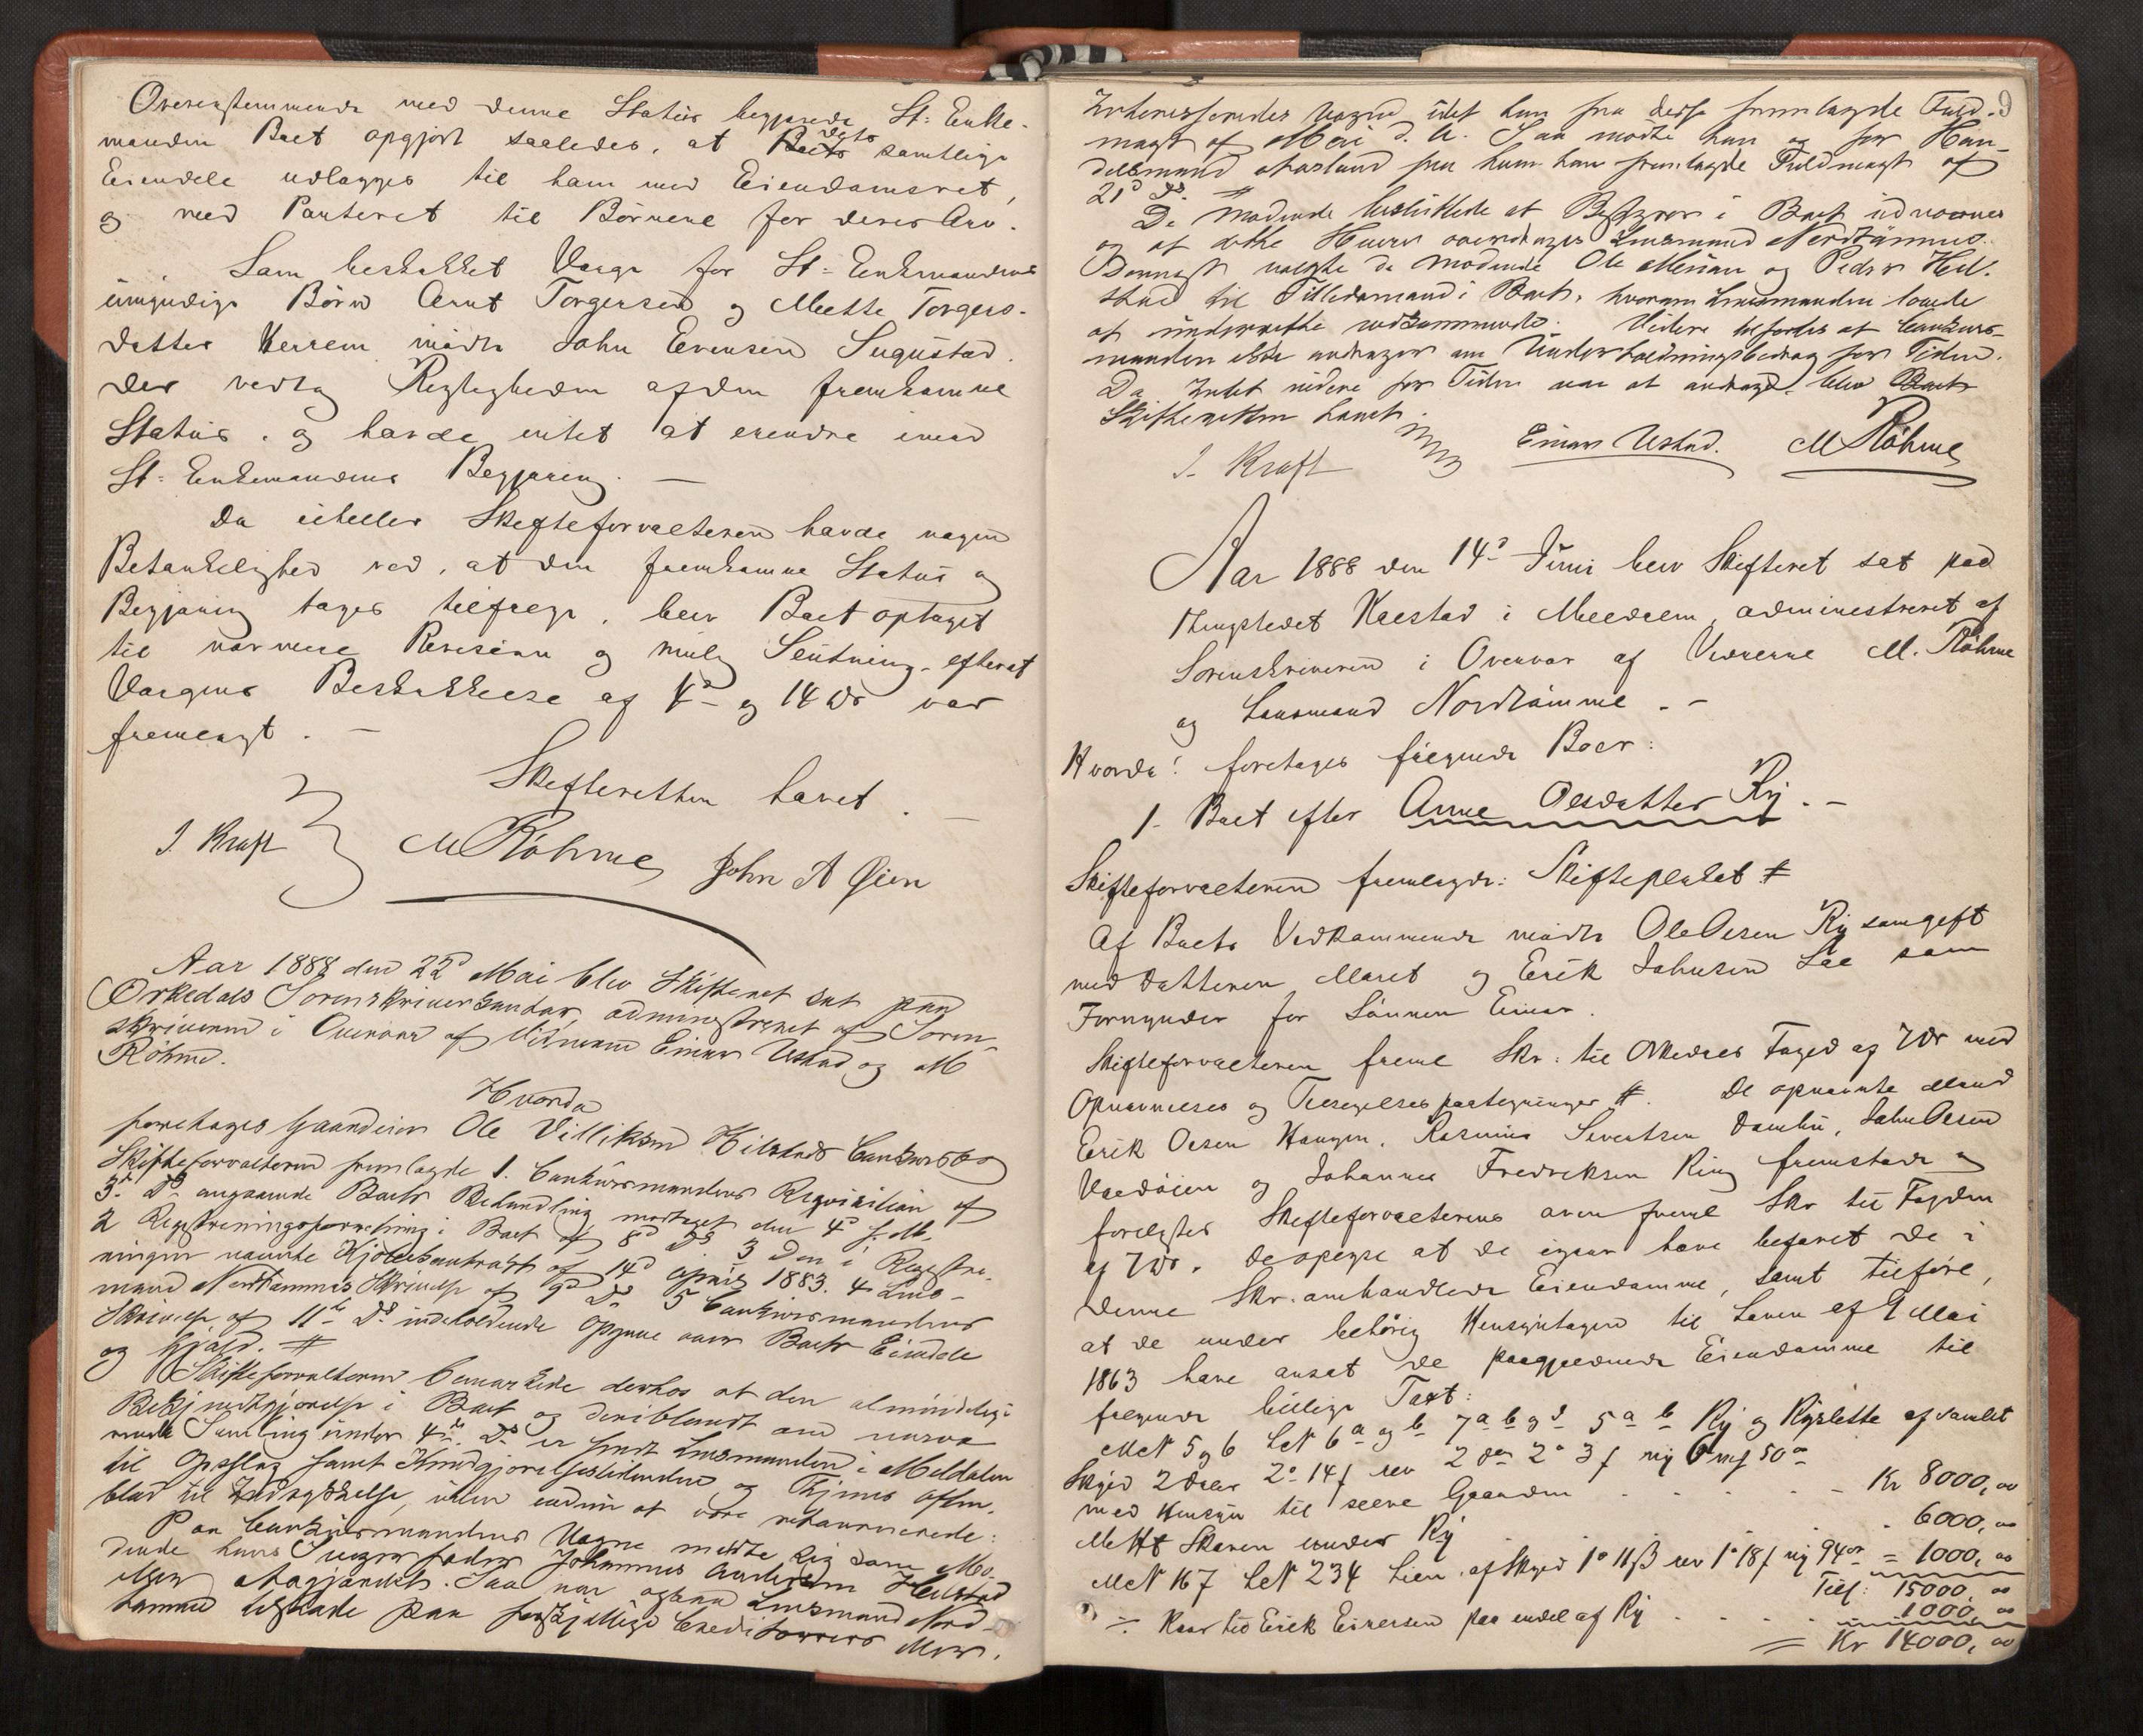 Overenstemmende med denne Status begjærede St: Enke-
manden Boet opgjort saaledes, at Boets dets samtlige
Eiendele udlægges til ham med Eiendomsret,
og med Panteret til Børnene for deres Arv.
Som beskikket Værge for St: Enkemandens
umyndige Børn Arnt Torgersen og Mette Torgers-
datter Herrem mødte John Evensen Sugustad.
der vedtog Rigtigheden af den fremkomne
Status, og havde intet at erindre imod
St: Enkemandens Begjæring. —
Da ei heller Skifteforvalteren havde nogen
Betænkelighed ved, at den fremkomne Status og
Begjæring tages tilfølge, blev Boet optaget
til nærmere Revision og mulig Slutning, efterat
Værgens Beskikkelse af 4d og 14 ds var
fremlagt. —
Skifteretten hævet. —
J. Kraft M Røhme John A Øien
Aar 1888 den 22d Mai blev Skifteret sat paa
Orkedals Sorenskriverkontor, administreret af Soren-
skriveren i Overvær af Vidnerne Einar Ustad og M
Røhme.
Hvorda
foretages Gaardeier Ole Villiksen Hilstads Conkursbo
Skifteforvalteren fremlagde 1. Conkursmandens Reqvisition af
3d ds angaaende Boets Behandling modtaget den 4d s. M.
2 Registreringsforretning i Boet af 8d ds 3 Den i Registre-
ningen nævnte Kjøbekontrakt af 14d April 1883. 4 Lens-
mand Nordtømmes Skrivelse af 9d ds 5 Conkursmandens
Skrivelse af 11te ds indeholdende Opgave over Boets Eiendele
og Gjæld. #
Skifteforvalteren bemærkede derhos at den almindelige
Bekjendtgjørelse i Boet og deriblandt om nærvæ
rende Samling under 4de ds er sendt Lensmanden i Meldalen
til Opslag samt Kundgjørelsestidenden og Thjems Aften-
blad til Indrykkelse, uden endnu at være returnerede.
Paa Conkursmandens Vegne mødte sig som Mø-
dende hans Svigerfader Johannes Hilstad
Saa var ogsaa Lensmand Nord-
tømme tilstede paa forskjellige Creditorers
Interesseredes Vegne idet han fra disse fremlagde Fuld-
magt af Mai d. A. Saa mødte han og for Han-
delsmand Aarlund fra hvem han fremlagde Fuldmagt af
21d ds. #
De Mødende besluttede at Bestyrer i Boet udnævnes
og at dette Hverv overdrages Lensmand Nordtømme.
Dernæst valgte de Mødende Ole og Peder Hil-
stad til Tillidsmænd i Boet, hvorom Lensmanden lovede
at underrette vedkommende. Videre tilførtes at Conkurs-
manden ikke andrager om Underholdningsbidrag for Tiden.
Da Intet videre for Tiden var at andrage, blev Boets
Skifteretten hævet.
J. Kraft Einar Ustad. M Røhme
Aar 1888 den 14d Juni blev Skifteret sat paa
Thingstedet Kalstad i Meldalen, administreret af
Sorenskriveren i Overvær af Vidnerne M. Røhme
og Lensmand Nordtømme. —
Hvorda! foretages følgende Boer:
1. Boet efter Anne Olsdatter Ry. —
Skifteforvalteren fremlagde: Skifteplakat #
Af Boets Vedkommende mødte Ole Olsen Ry som gift
med Datteren Maret og Erik Johnsen Løe som
Formynder for Sønnen Einar.
Skifteforvalteren freml Skr: til Orkedals Foged af 7 ds med
Opnævnelses og Tilsigelsespaategninger #. De opnævnte Mænd
Erik Olsen Haugen, Rasmus Sivertsen Dambu, John Olsen
Voldøien og Johannes Fredriksen Ring fremstode og
forelystes Skifteforvalterens oven freml Skr til Fogden
af 7 ds. de opgave at de igaar have befaret de i
denne Skr. omhandlede Eiendomme, samt tilføie,
at de under behørig Hensyntagen til Loven af 9 Mai
1863 have ansat de paagjældende Eiendomme til
følgende billige Taxt:
M.N 5 og 6 L.N 6a og b 7a b og d 5a b Ry og Ryslette af samlet
Skyld 2 Daler 2o 14 s rev 2 dr 2o 3 s ny 6 m 50 o
med Hensyn til selve Gaarden . . . . — Kr 8000,00
M Ht Skoven under Ry . 6000,00
M.N 167 L.N 234 Lien . af Skyld 1o 11 ß rev 1o 18 s ny 94 or = 1000,00
Till: 15000,00
÷ Kaar til Erik Einersen paa endel af Ry . . . . 1000,00
= Kr 14000,00